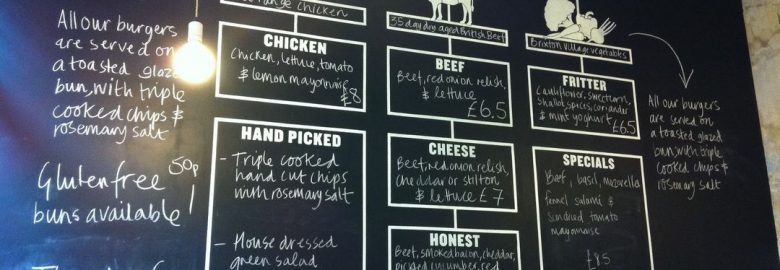 All our burgers
are served on
a toasted glazed
bun, with triple
cooked chips &
rosemary salt
Gluten free 50p
buns available!
range chicken
CHICKEN
Chicken, lettuce, tomato
& lemon mayonnaise
£8
HAND PICKED
- Triple cooked
hand cut chips
with rosemary salt
- House dressed
green salad
35 day dry aged British Beef
BEEF
Beef, red onion relish,
& lettuce
£6.5
CHEESE
Beef, red onion relish,
cheddar or stilton
& lettuce £7
HONEST
Beef, smoked bacon, cheddar,
pickled cucumber, red
Brixton village vegetables
FRITTER
Cauliflower, sweetcorn,
shallot, spices, coriander
& mint yoghurt £6.5
SPECIALS
Beef, basil, mozzarella
fennel salami &
Sundried tomato
mayonnaise
£8.5
All our burgers
are served on
a toasted glazed
bun, with triple
cooked chips &
rosemary salt